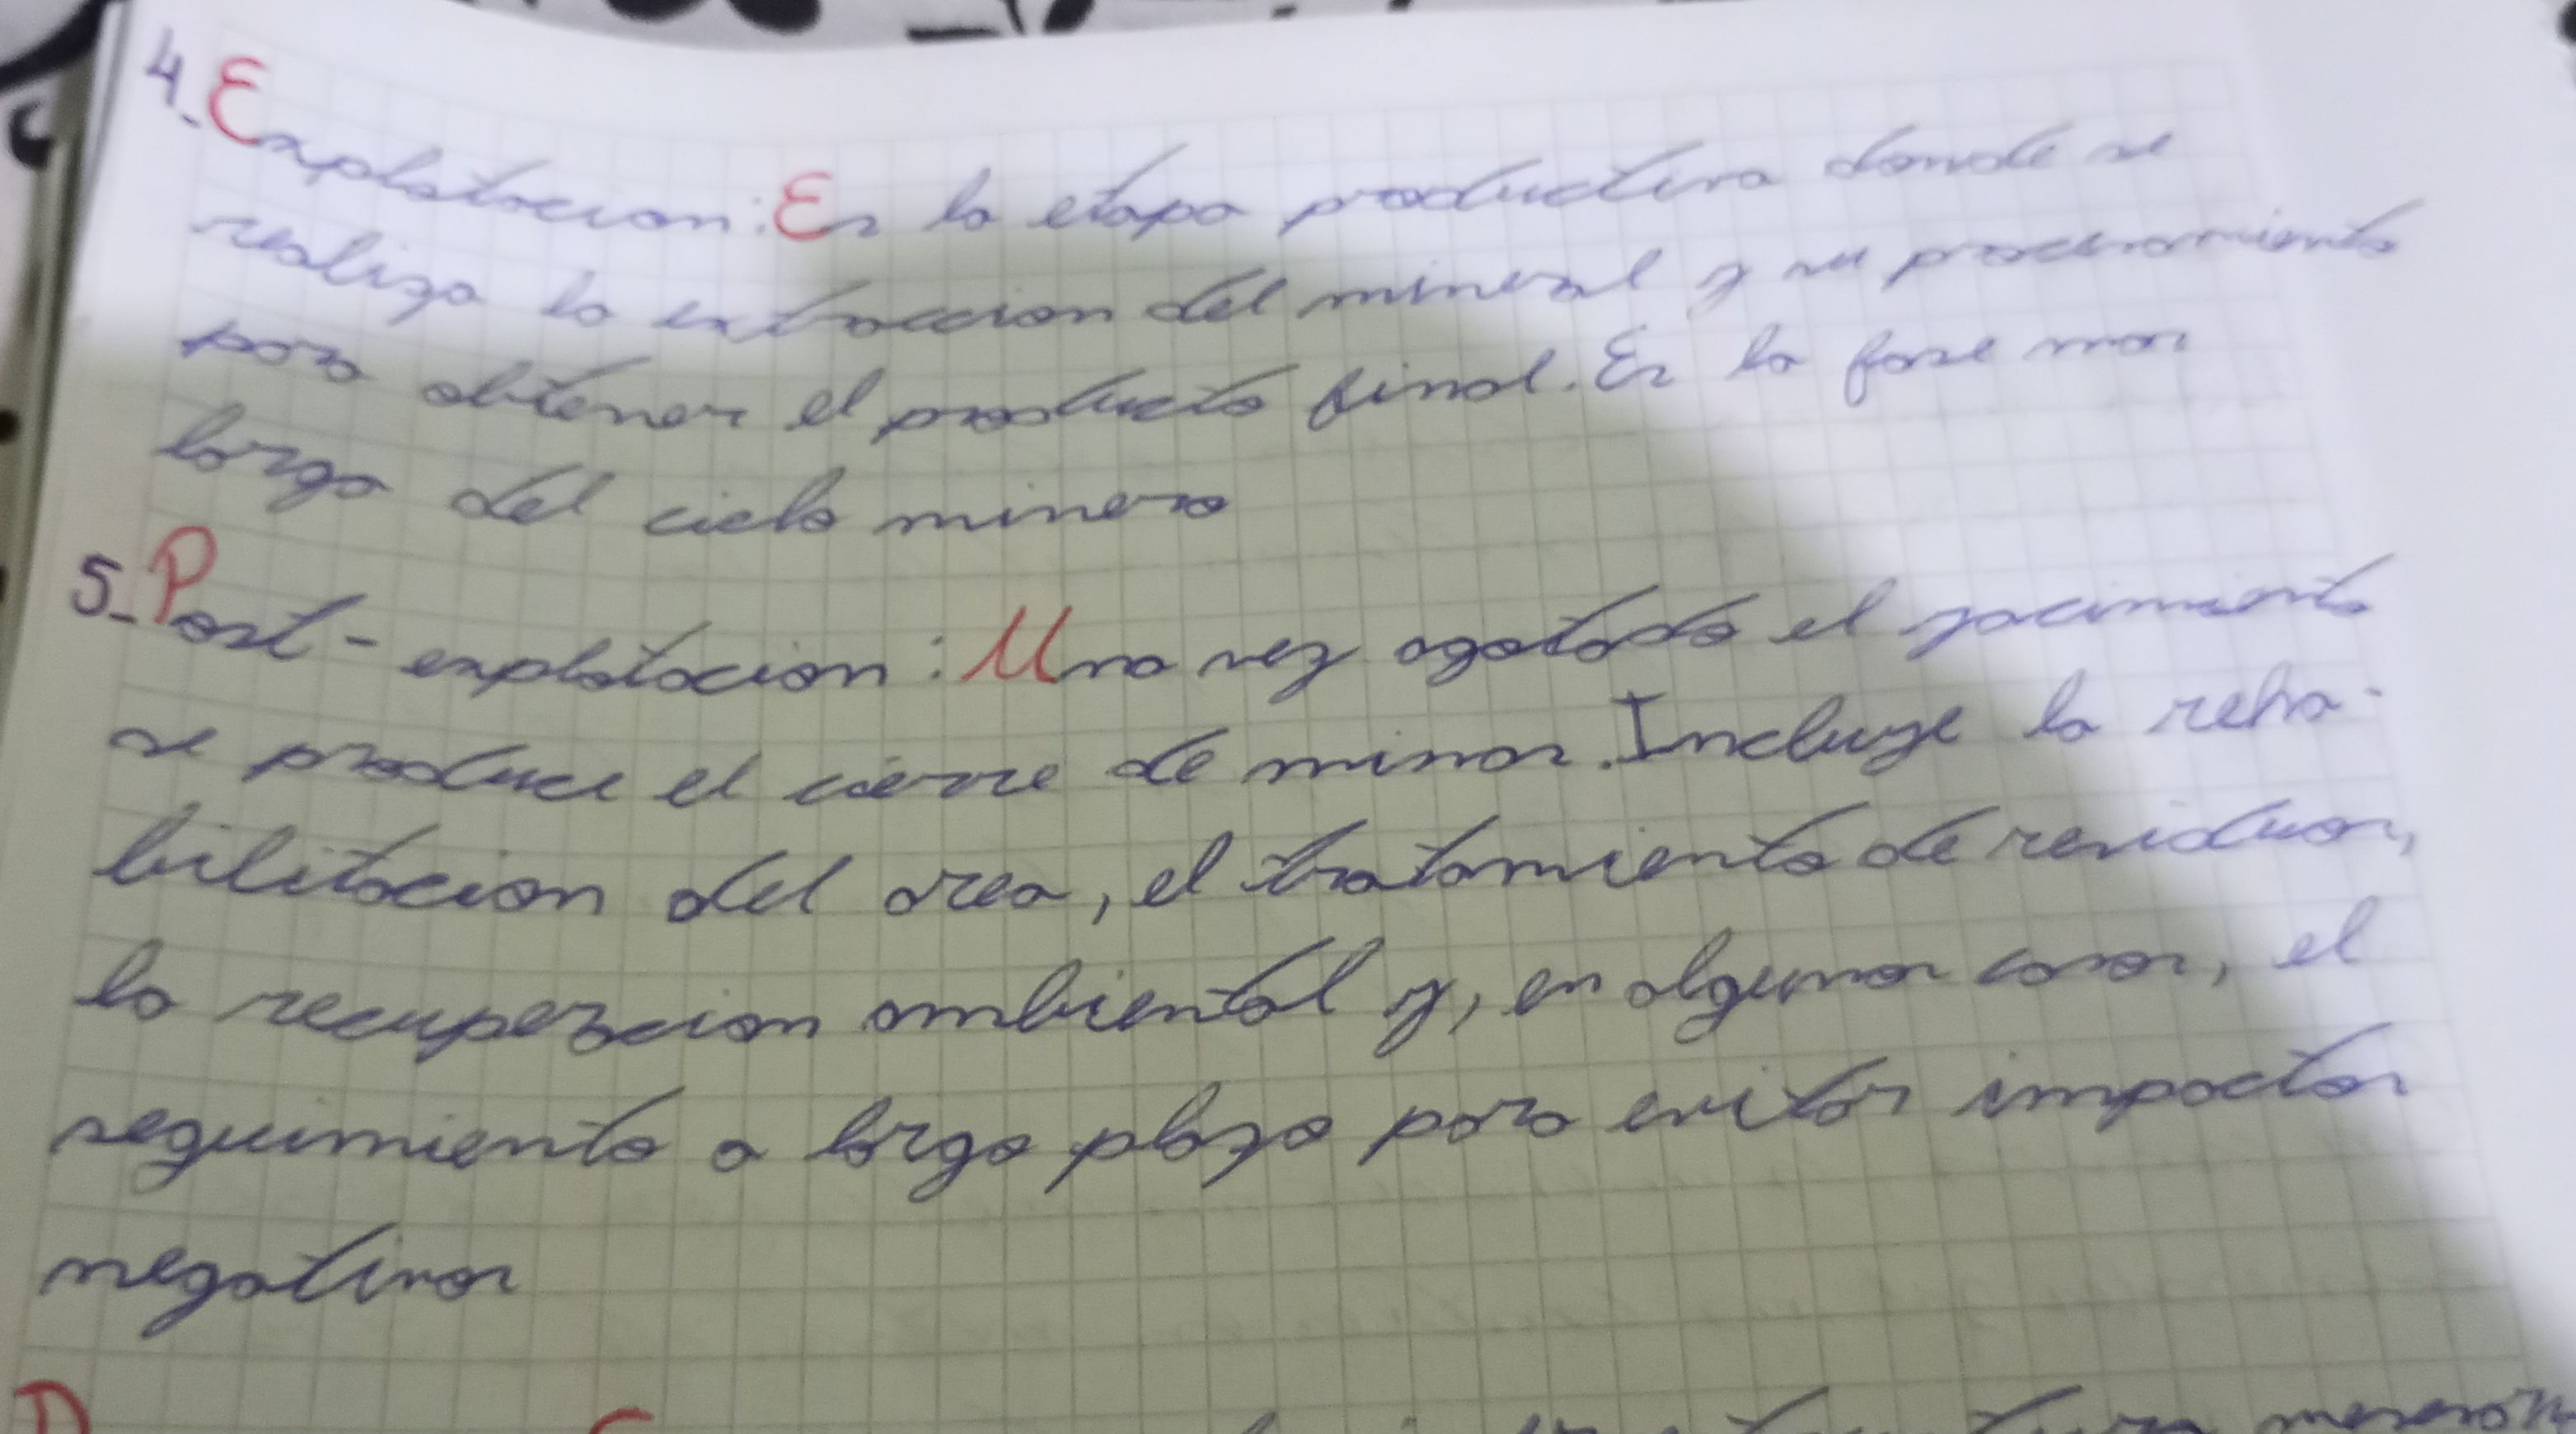 4-Explotacion: Es la etapa productiva donde se
realiza la extraccion del mineral y su procesamiento
para obtener el producto final. Es la fase mas
larga del ciclo minero
5-Post-explotacion: Una vez agotado el yacimiento
se produce el cierre de minas. Incluye la reha-
bilitacion del area, el tratamiento de residuos,
la recuperacion ambiental y, en algunos casos, el
seguimiento a largo plazo para evitar impactos
negativos